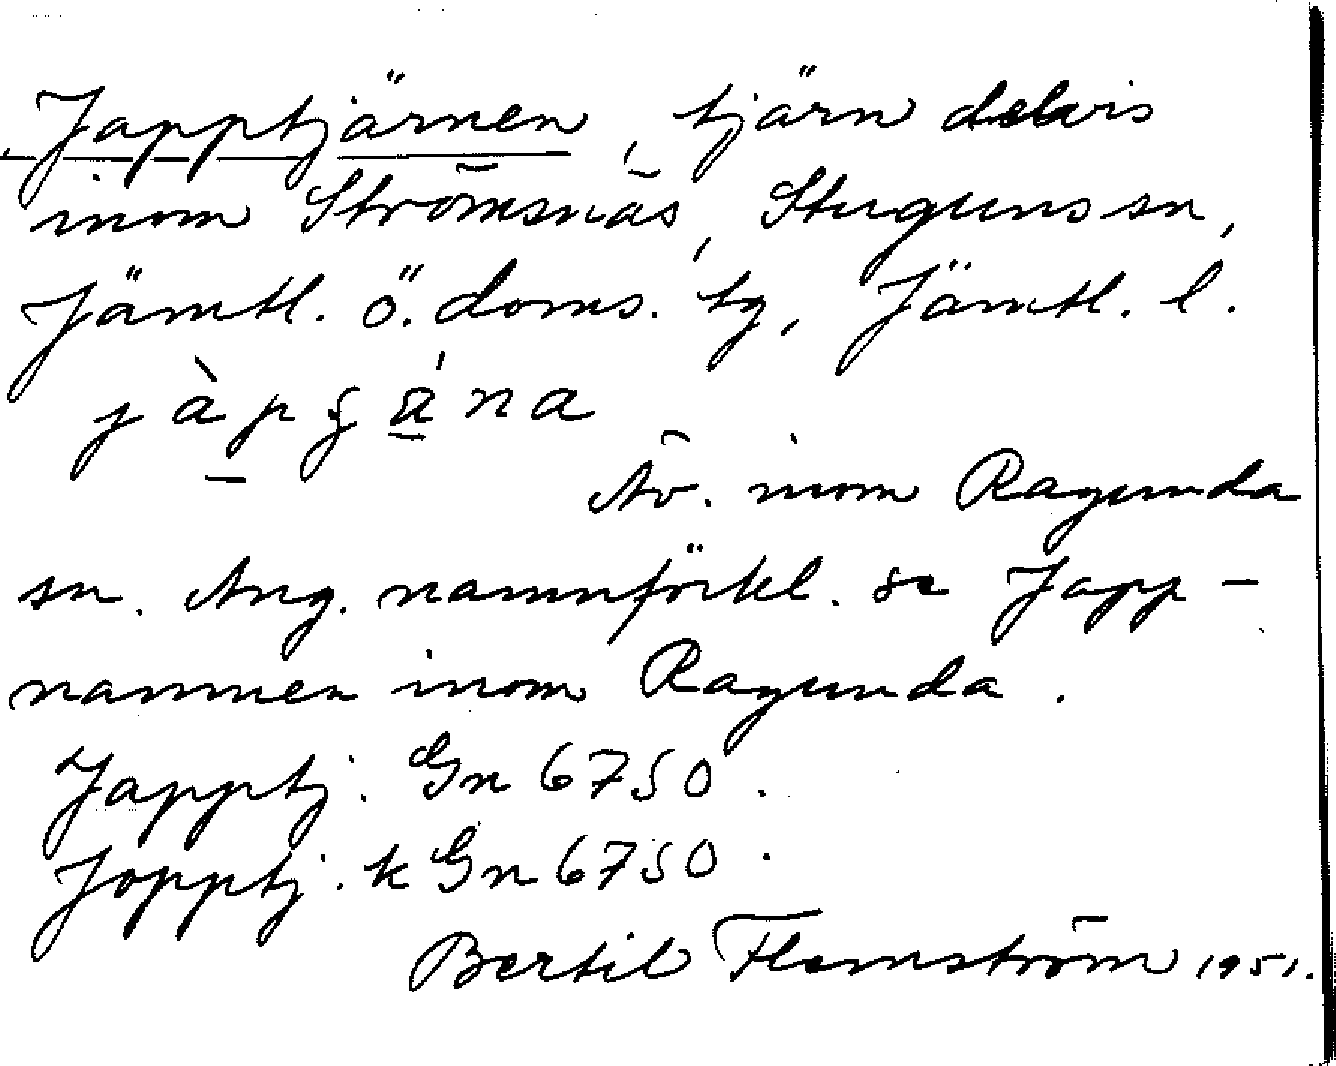 Japptjärnen, tjärn delvis
inom Strömsnäs, Stuguns sn,
Jämtl. ö. doms. tg, Jämtl. l.
Äv. inom Ragunda
sn. Ang. namnförkl. se Japp-
namnen inom Ragunda.
Japptj. Gn 6750.
Jopptj. k Gn 6750.
Bertil Flemström 1951.